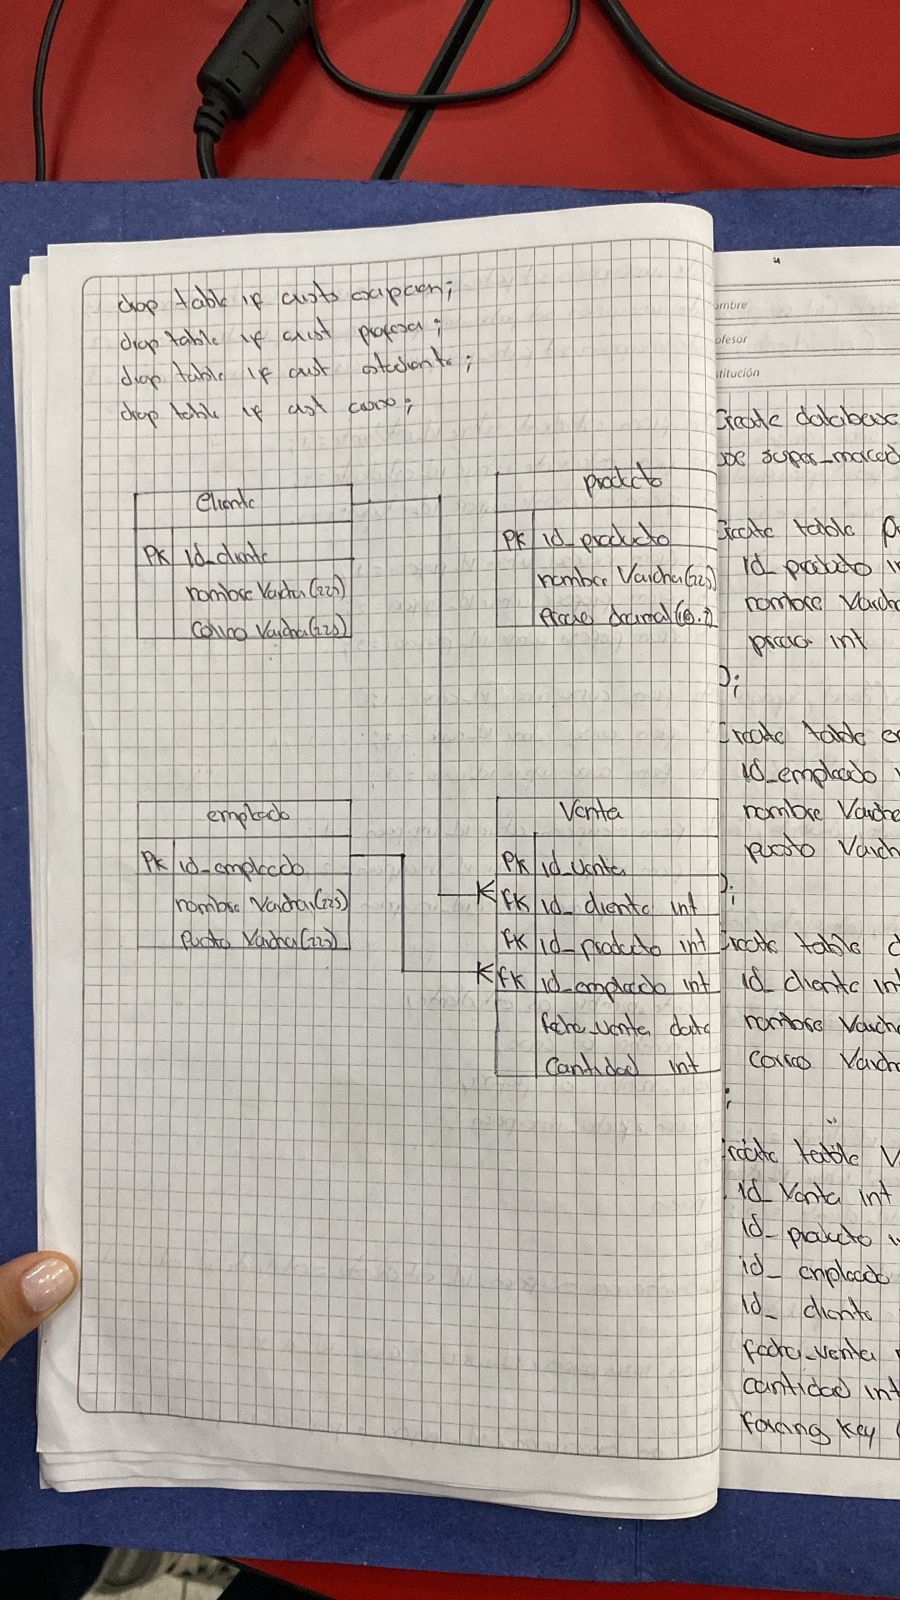 drop table if exists
drop table if exist profesor;
drop table if exist estudiante;
drop table if exist curso;
Cliente
PK id_cliente
nombre Varchar(225)
correo Varchar(225)
producto
PK id_producto
nombre Varchar(225)
Precio decimal(10.2)
empleado
PK id_empleado
nombre Varchar(225)
Puesto Varchar(225)
Venta
PK id_venta
FK id_cliente int
FK id_producto int
FK id_empleado int
fecha_venta date
Cantidad int
ombre
ofesor
titución
Create database
use super_mercad
Create table p
id_producto in
nombre Varcha
precio int
);
Create table em
id_empleado
nombre Varcha
puesto Varch
);
Create table c
id_cliente int
nombre Varcha
correo Varcha
;
Create table V
id_Venta int
id_producto
id_empleado
id_cliente
fecha_venta
cantidad int
key (